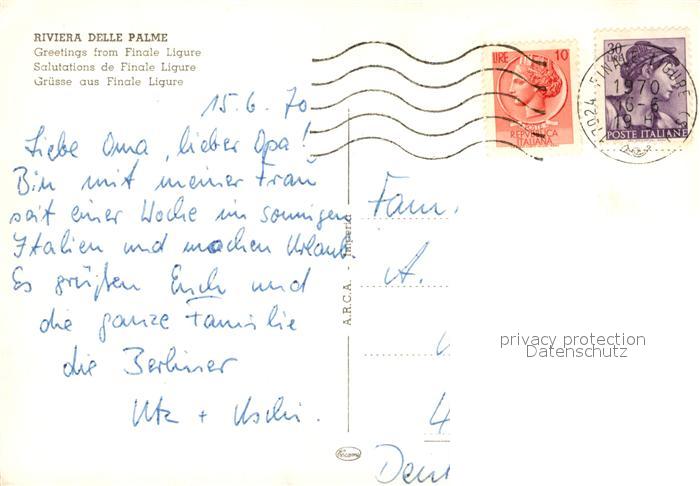 RIVIERA DELLE PALME
Greetings from Finale Ligure
Salutations de Finale Ligure
Grüsse aus Finale Ligure
15.6.70
Liebe Oma, lieber Opa!
Bin mit meiner Frau
seit einer Woche im sonnigen
Italien und machen Urlaub.
Es grüßen Euch und
die ganze Familie
die Berliner
Utz + Uschi.
A.R.C.A. - Imperia
LIRE 10
REPVBBLICA
ITALIANA
30
LIRE
POSTE ITALIANE
FINALE LIGURE
1970
16-6
19 H
Fam.
A.
4
privacy protection
Datenschutz